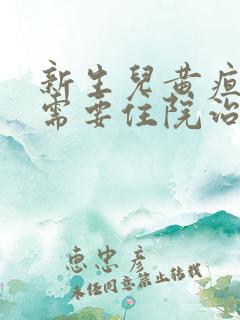 新生兒黄疸
需要住院治
惠忠彦
未经同意禁止转载